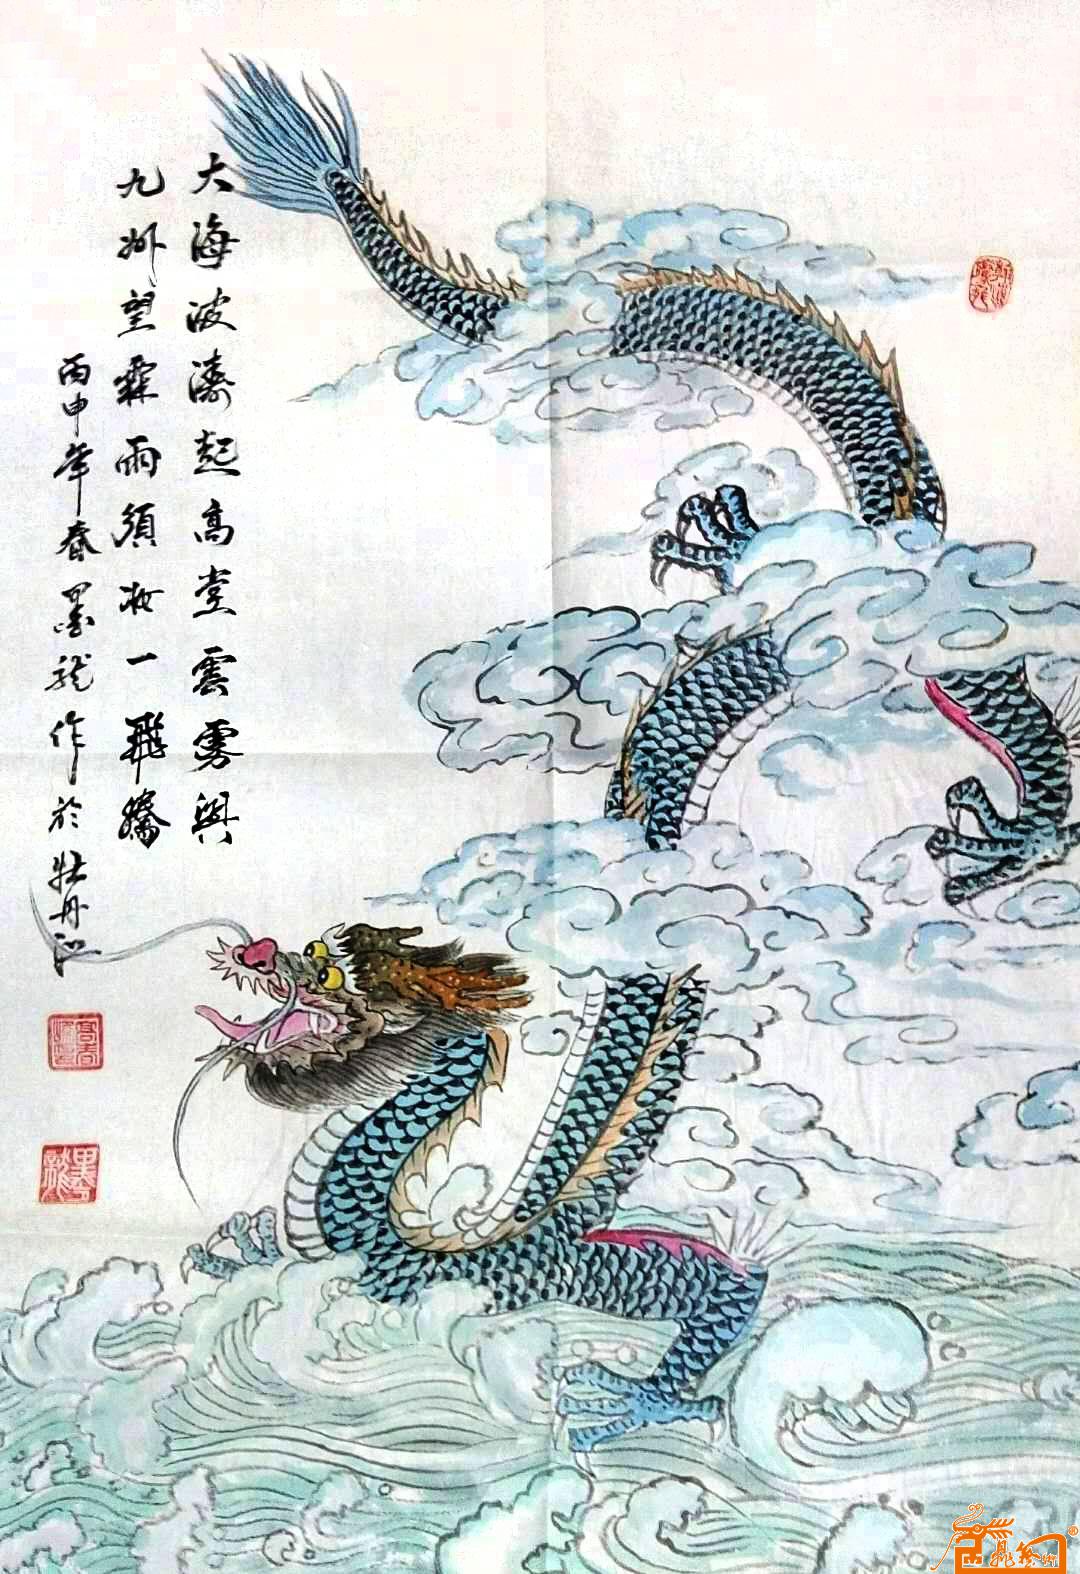 大海波涛起高堂雲雾興
九州望霖雨須汝一飛騰
丙申年春墨龍作於牡丹江
墨龍